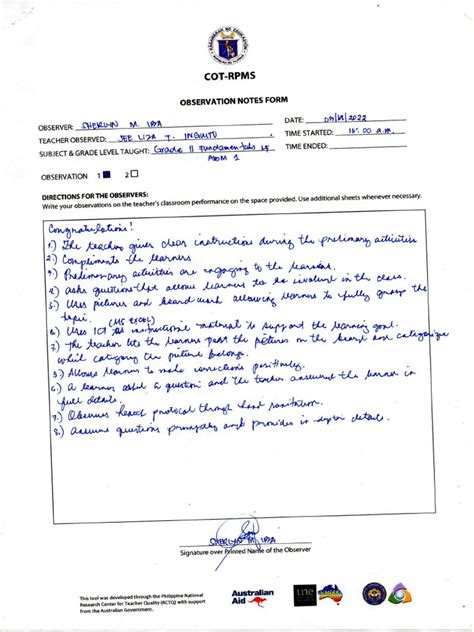 COT-RPMS
OBSERVATION NOTES FORM
OBSERVER: SHERLYN M. DATE: 2022
TEACHER OBSERVED: JEE LIZA T. INGUITO TIME STARTED: 10:00 a.m.
SUBJECT & GRADE LEVEL TAUGHT: Grade 11 Fundamentals of TIME ENDED:
ABM 1
OBSERVATION 1 2
DIRECTIONS FOR THE OBSERVERS:
Write your observations on the teacher's classroom performance on the space provided. Use additional sheets whenever necessary.
Congratulations!
1.) The teacher gives clear instructions during the preliminary activities
2.) Compliments the learners
3.) Preliminary activities are engaging to the learners.
4.) asks questions that allow learners to be involved in the class.
5.) Uses pictures and board work allowing learners to fully grasp the
topic. (MS EXCEL)
6.) Uses ICT as instructional material to support the learning goal.
7.) The teacher lets the learners post the pictures on the board and categorize
which category the picture belongs.
Allows learner to make corrections positively.
A learner asked a question and the teacher answered the learner in
full details.
7.) Observes health protocol through hand sanitation.
8.) Answers questions promptly and provides in-depth details.
SHERLYN M.
Signature over Printed Name of the Observer
This tool was developed through the Philippine National
Research Center for Teacher Quality (RCTQ) with support
from the Australian Government.
Australian
Aid
une